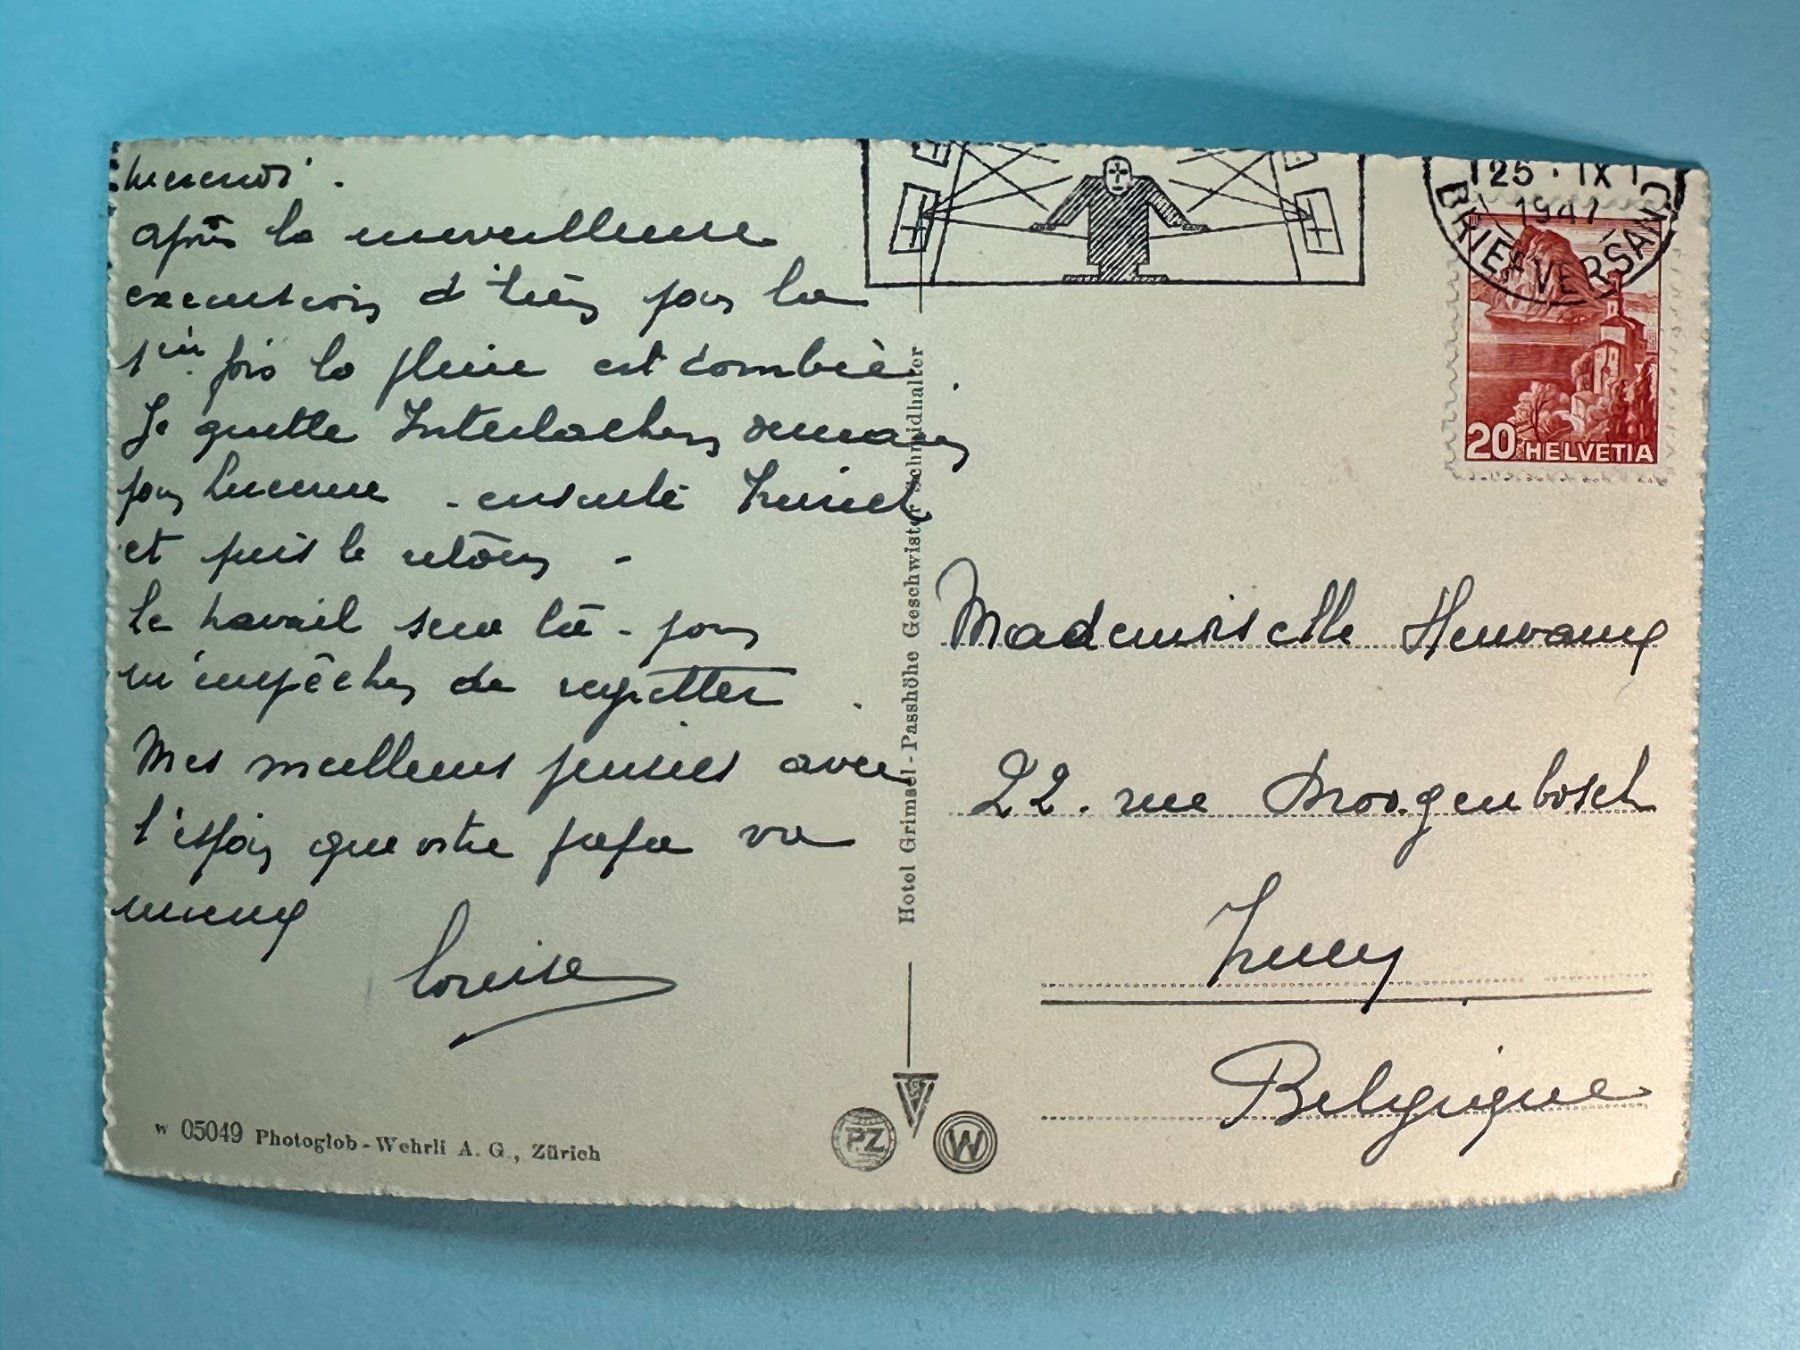 Mercredi.
après la merveilleuse
excursion d'hier, pour la
1ère fois la pluie est tombée.
Je quitte Interlaken demain
pour Lucerne - ensuite Zurich
et puis le retour -
Le travail sera là - pour
m'empêcher de regretter.
Mes meilleures pensées avec
l'espoir que votre papa va
mieux
Louise
W 05049 Photoglob-Wehrli A. G., Zürich
Hotel Grimsel-Passhöhe Geschwister Schmidhalter
PZ
W
25. IX
1947
BRIEFVERSAND
20 HELVETIA
Mademoiselle
22. rue Droogenbosch
Belgique